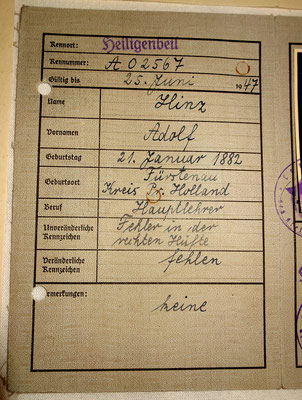 Kennort: Heiligenbeil
Kennummer: A 02567
Gültig bis 25. Juni 1947
Name Hinz
Vornamen Adolf
Geburtstag 21. Januar 1882
Geburtsort Fürstenau
Kreis Pr. Holland
Beruf Hauptlehrer
Unveränderliche Kennzeichen Fehler in der
rechten Hüfte
Veränderliche Kennzeichen fehlen
Bemerkungen: keine